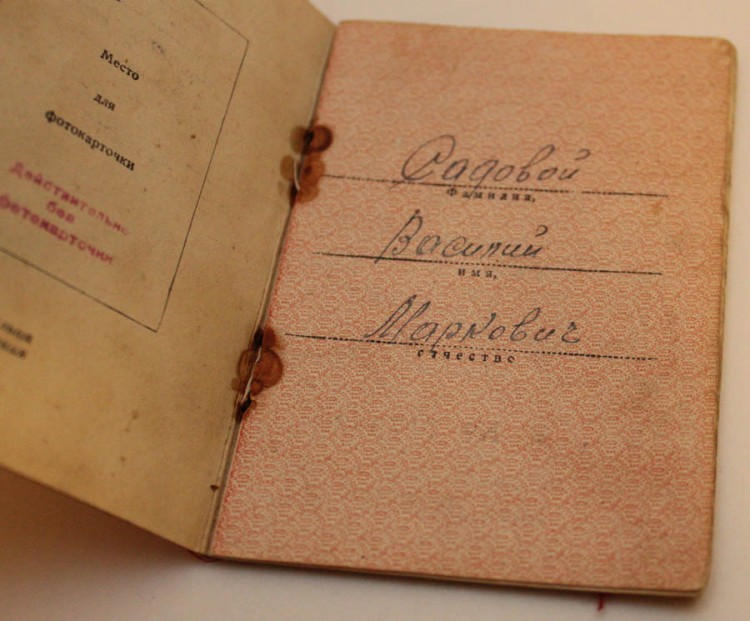 Место
для
фотокарточки
Действительно
без
фотокарточки
Садовой
Фамилия,
Василий
имя,
Маркович
отчество